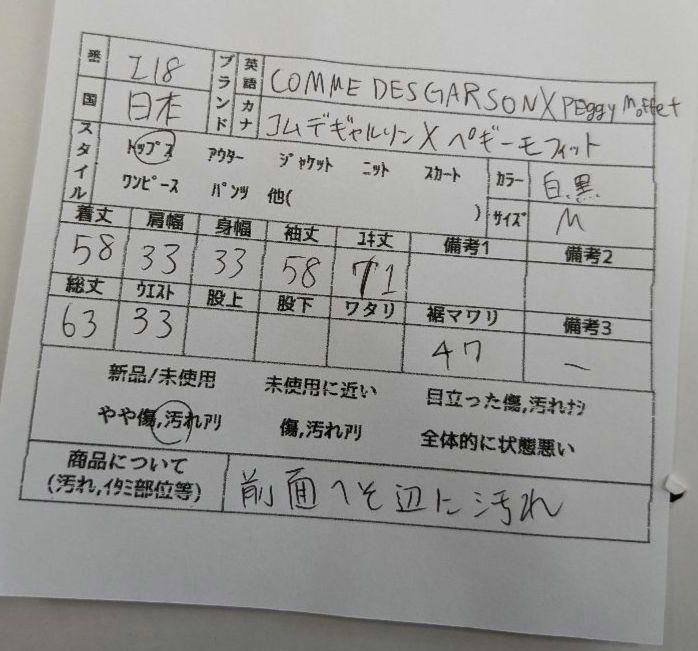 番 I18 ブランド 英語 COMME DES GARSON X PEggy Moffet
国 日本 カナ コムデギャルソン X ペギーモフィット
スタイル トップス アウター ジャケット ニット スカート カラー 白.黒.
ワンピース パンツ 他( ) サイズ M
着丈 肩幅 身幅 袖丈 ユキ丈 備考1 備考2
58 33 33 58 71
総丈 ウエスト 股上 股下 ワタリ 裾マワリ 備考3
63 33 47 —
新品/未使用 未使用に近い 目立った傷,汚れナシ
やや傷,汚れアリ 傷,汚れアリ 全体的に状態悪い
商品について
(汚れ,イタミ部位等) 前面へそ辺に汚れ